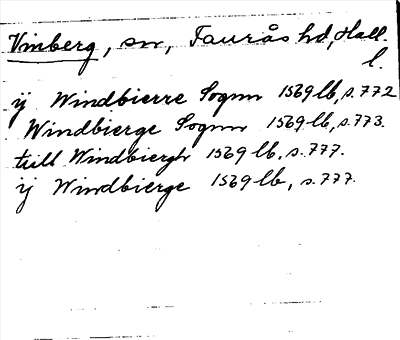 Vinberg, sn, Faurås hd, Hall.
l.
ij Windbierre Sognn 1569 lb, s. 772
Windbierge Sognn 1569 lb, s. 773.
till Windbiergh 1569 lb, s. 777.
ij Windbierge 1569 lb, s. 777.